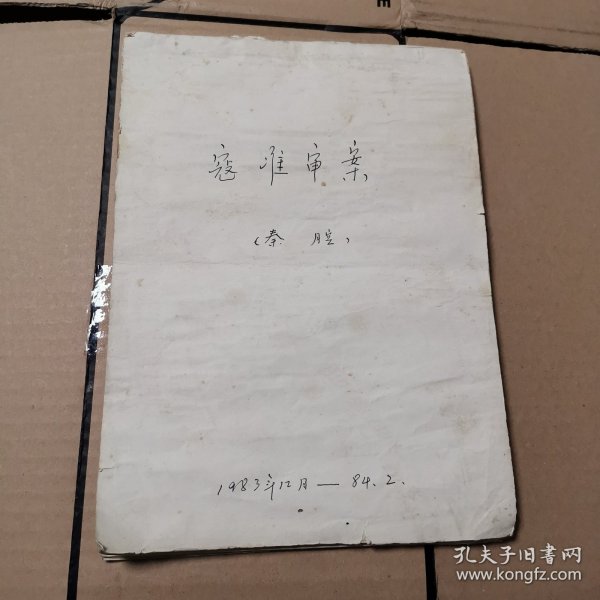 寇准审案
（秦腔）
1983年12月—84.2.
孔夫子旧书网
www.kongfz.com
E